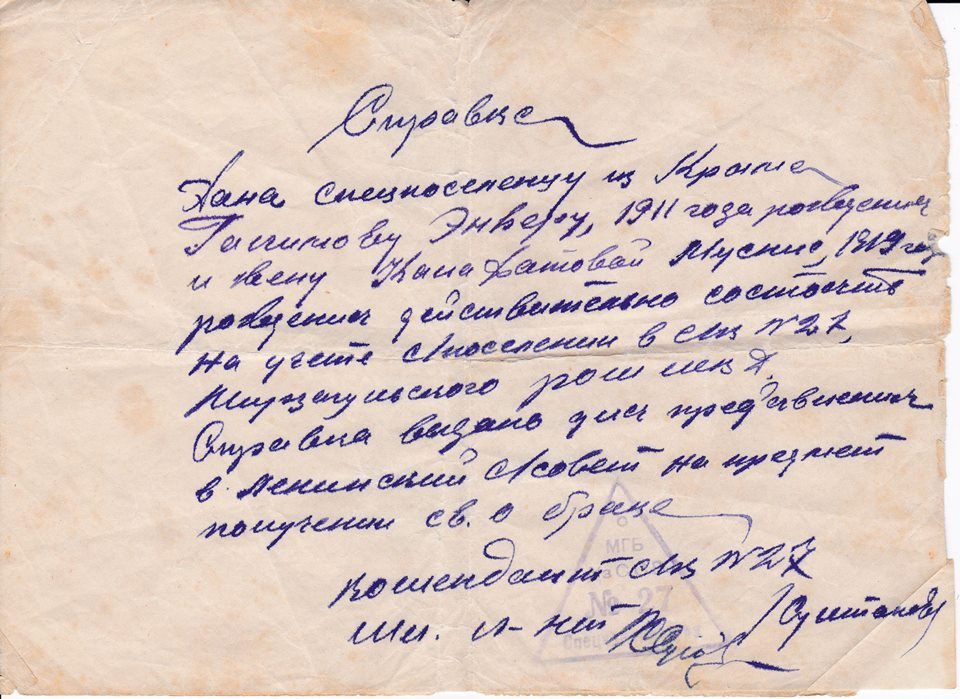 Справка
Дана спецпоселенцу из Крыма
Гасимову Энверу, 1911 года рождения
и жену Канахатовой Мусние, 1919 год
рождения действительно состоить
на учете спецпоселении в с/к № 27,
Мирзачульского МГБ.
Справка выдано для предявления
в Ленинский с/совет на предмет
получении св. о браце
Комендант с/к № 27
Мл. л-нт /Султанов/
МГБ
№ 27